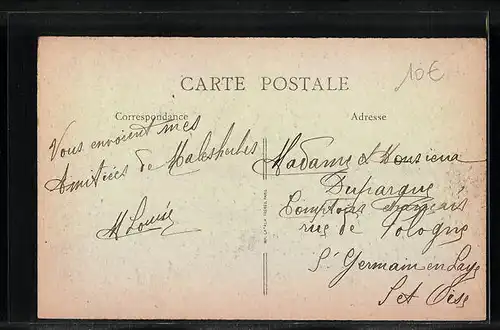 10€
CARTE POSTALE
Correspondance
Adresse
Vous envoient mes
Amitiées de Malesherbes
M Louise
Madame et Monsieur
Duparque
Comptoirs français
rue de Pologne
St Germain en Laye
S et Oise